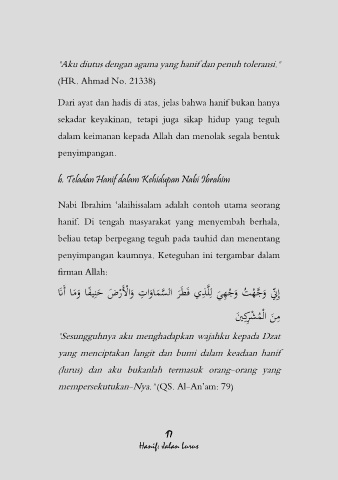 "Aku diutus dengan agama yang hanif dan penuh toleransi."
(HR. Ahmad No. 21338)
Dari ayat dan hadis di atas, jelas bahwa hanif bukan hanya
sekadar keyakinan, tetapi juga sikap hidup yang teguh
dalam keimanan kepada Allah dan menolak segala bentuk
penyimpangan.
b. Teladan Hanif dalam Kehidupan Nabi Ibrahim
Nabi Ibrahim 'alaihissalam adalah contoh utama seorang
hanif. Di tengah masyarakat yang menyembah berhala,
beliau tetap berpegang teguh pada tauhid dan menentang
penyimpangan kaumnya. Keteguhan ini tergambar dalam
firman Allah:
إِنِّي وَجَّهْتُ وَجْهِيَ لِلَّذِي فَطَرَ السَّمَاوَاتِ وَالْأَرْضَ حَنِيفًا وَمَا أَنَا
مِنَ الْمُشْرِكِينَ
"Sesungguhnya aku menghadapkan wajahku kepada Dzat
yang menciptakan langit dan bumi dalam keadaan hanif
(lurus) dan aku bukanlah termasuk orang-orang yang
mempersekutukan-Nya." (QS. Al-An'am: 79)
Hanif: Jalan Lurus